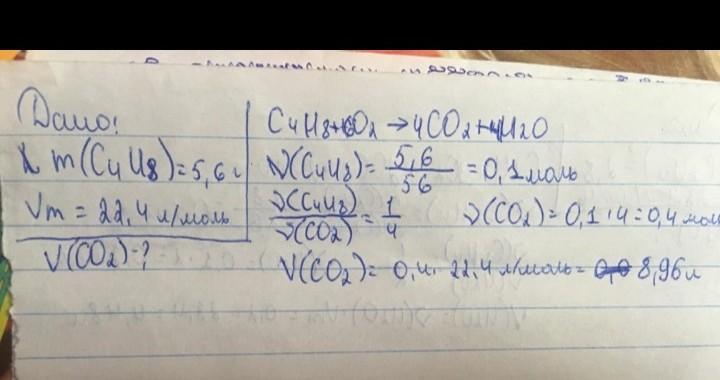 Дано:
m(C4H8)=5,6 г
Vm = 22,4 л/моль
V(CO2)-?
C4H8+6O2 → 4CO2+4H2O
ν(C4H8)= 5,6/56 = 0,1 моль
ν(C4H8)/ν(CO2) = 1/4 ν(CO2)= 0,1·4=0,4 мол
V(CO2)= 0,4· 22,4 л/моль= 8,96 л